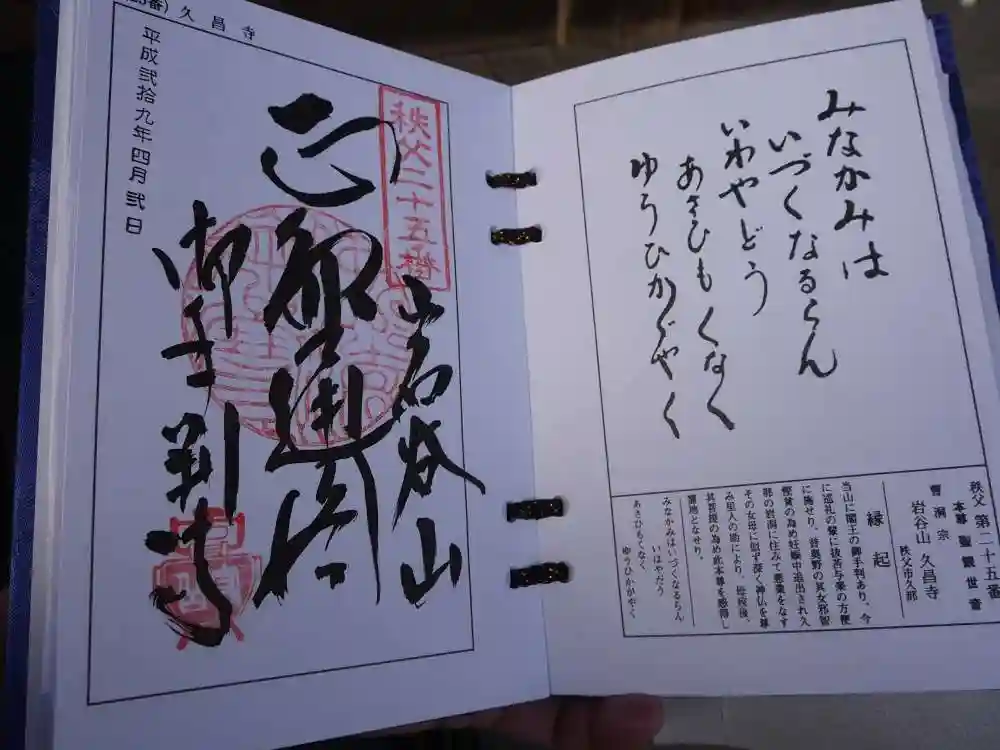 みなかみは
いづくなるらん
いわやどう
あさひもくなく
ゆうひかゞやく
秩父 第二十五番
本尊 聖観世音
曹洞宗
岩谷山 久昌寺
秩父市久那
縁起
当山に閻王の御手判あり、今
に巡礼の輩に抜苦与楽の方便
に施せり。昔奥野の其女邪智
慳貪の為め妊娠中追出され久
那の岩洞に住みて悪業をなす
その女母に似ず深く神仏を尊
み里人の助により、母歿後、
其菩提の為め此本尊を感得し
となせり。
みなかみはいづくなるらん
いはやだう
あさひもくなく
ゆうひかがやく
番) 久昌寺
秩父二十五番
岩谷山
御手判寺
平成弐拾九年四月弐日